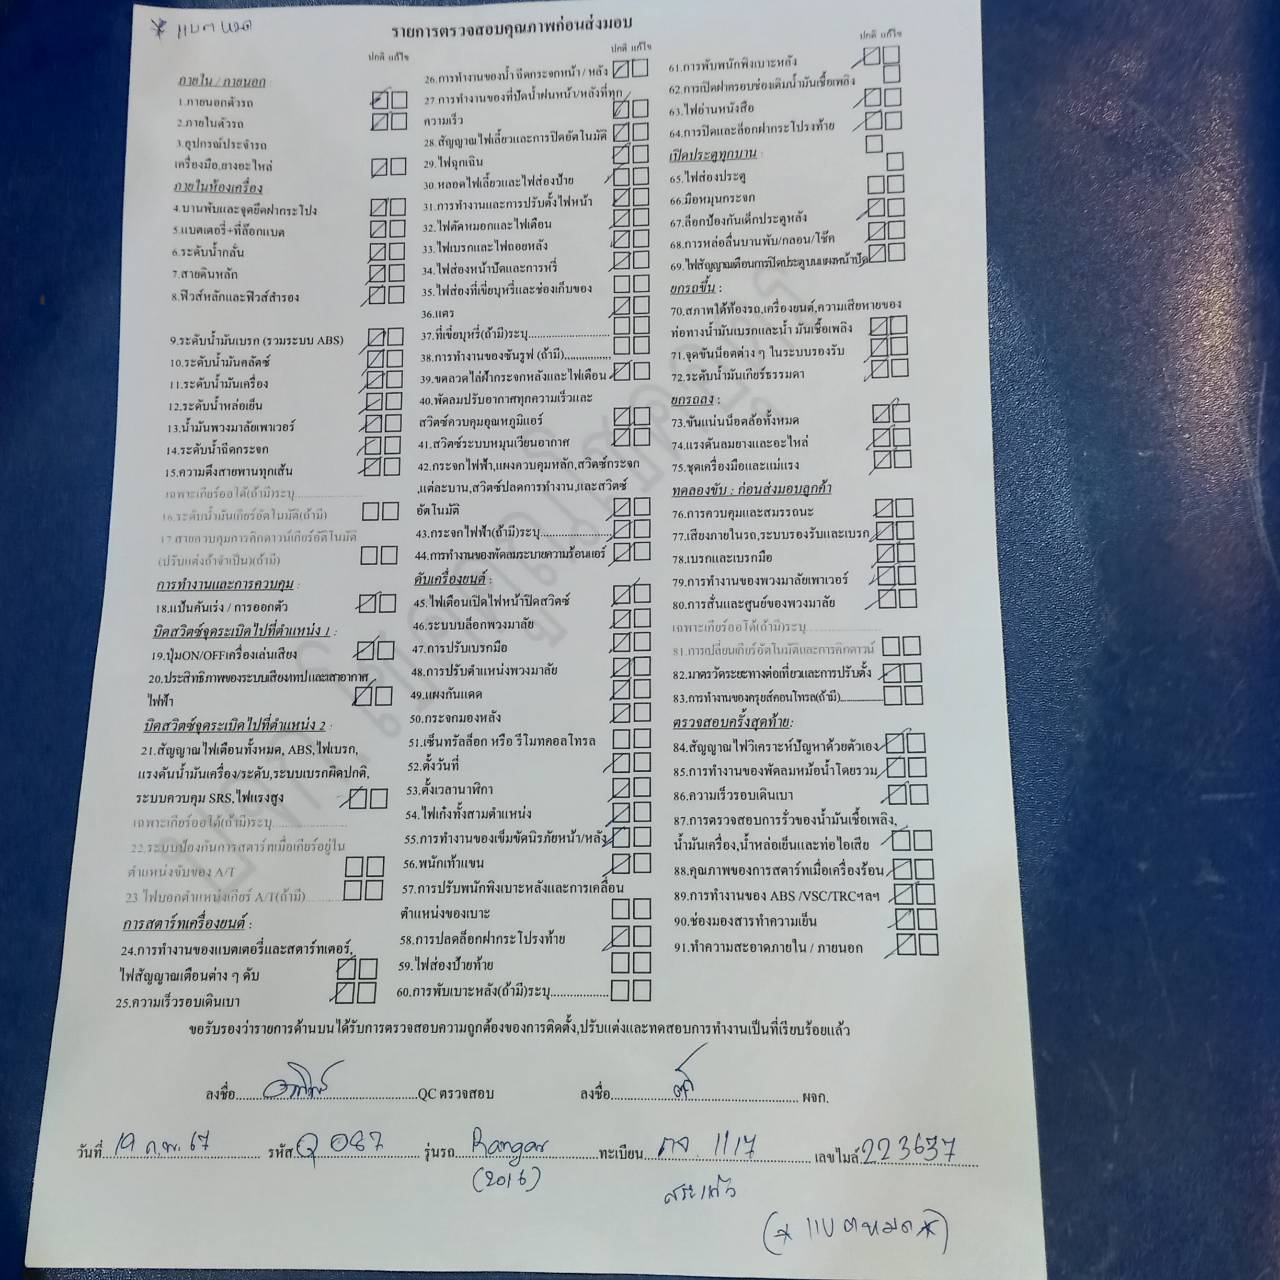 * แบตหมด
รายการตรวจสอบคุณภาพก่อนส่งมอบ
ปกติ แก้ไข
ภายใน / ภายนอก
1.ภายนอกตัวรถ
2.ภายในตัวรถ
3.อุปกรณ์ประจำรถ
เครื่องมือ,ยางอะไหล่
ภายในห้องเครื่อง
4.บานพับและจุดยึดฝากระโปง
5.แบตเตอรี่+ที่ล๊อกแบต
6.ระดับน้ำกลั่น
7.สายดินหลัก
8.ฟิวส์หลักและฟิวส์สำรอง
9.ระดับน้ำมันเบรก (รวมระบบ ABS)
10.ระดับน้ำมันคลัตช์
11.ระดับน้ำมันเครื่อง
12.ระดับน้ำหล่อเย็น
13.น้ำมันพวงมาลัยเพาเวอร์
14.ระดับน้ำฉีดกระจก
15.ความตึงสายพานทุกเส้น
เฉพาะเกียร์ออโต้(ถ้ามี)ระบุ....................
16.ระดับน้ำมันเกียร์อัตโนมัติ(ถ้ามี)
17.สายควบคุมการคิกดาวน์เกียร์อัตโนมัติ
(ปรับแต่งถ้าจำเป็น)(ถ้ามี)
การทำงานและการควบคุม :
18.แป้นคันเร่ง / การออกตัว
บิดสวิตซ์จุดระเบิดไปที่ตำแหน่ง 1 :
19.ปุ่มON/OFFเครื่องเล่นเสียง
20.ประสิทธิภาพของระบบเสียง/เทป และเสาอากาศ
ไฟฟ้า
บิดสวิตซ์จุดระเบิดไปที่ตำแหน่ง 2 :
21.สัญญาณไฟเตือนทั้งหมด, ABS,ไฟเบรก,
แรงดันน้ำมันเครื่อง/ระดับ,ระบบเบรกผิดปกติ,
ระบบควบคุม SRS,ไฟแรงสูง
เฉพาะเกียร์ออโต้(ถ้ามี)ระบุ....................
22.ระบบป้องกันการสตาร์ทเมื่อเกียร์อยู่ใน
ตำแหน่งขับของ A/T
23.ไฟบอกตำแหน่งเกียร์ A/T(ถ้ามี)
การสตาร์ทเครื่องยนต์ :
24.การทำงานของแบตเตอรี่และสตาร์ทเตอร์,
ไฟสัญญาณเตือนต่าง ๆ ดับ
25.ความเร็วรอบเดินเบา
ปกติ แก้ไข
26.การทำงานของน้ำ ฉีดกระจกหน้า / หลัง
27.การทำงานของที่ปัดน้ำฝนหน้า/หลังที่ทุก
ความเร็ว
28.สัญญาณไฟเลี้ยวและการปิดอัตโนมัติ
29.ไฟฉุกเฉิน
30.หลอดไฟเลี้ยวและไฟส่องป้าย
31.การทำงานและการปรับตั้งไฟหน้า
32.ไฟตัดหมอกและไฟเตือน
33.ไฟเบรกและไฟถอยหลัง
34.ไฟส่องหน้าปัดและการหรี่
35.ไฟส่องที่เขี่ยบุหรี่และช่องเก็บของ
36.แตร
37.ที่เขี่ยบุหรี่(ถ้ามี)ระบุ..........................
38.การทำงานของซันรูฟ (ถ้ามี)...............
39.ขดลวดไล่ฝ้ากระจกหลังและไฟเตือน
40.พัดลมปรับอากาศทุกความเร็วและ
สวิตซ์ควบคุมอุณหภูมิแอร์
41.สวิตซ์ระบบหมุนเวียนอากาศ
42.กระจกไฟฟ้า,แผงควบคุมหลัก,สวิตซ์กระจก
,แต่ละบาน,สวิตซ์ปลดการทำงาน,และสวิตซ์
อัตโนมัติ
43.กระจกไฟฟ้า(ถ้ามี)ระบุ........................
44.การทำงานของพัดลมระบายความร้อนแอร์
ดับเครื่องยนต์ :
45.ไฟเตือนเปิดไฟหน้าปิดสวิตซ์
46.ระบบบล็อกพวงมาลัย
47.การปรับเบรกมือ
48.การปรับตำแหน่งพวงมาลัย
49.แผงกันแดด
50.กระจกมองหลัง
51.เซ็นทรัลล็อก หรือ รีโมทคอลโทรล
52.ตั้งวันที่
53.ตั้งเวลานาฬิกา
54.ไฟเก๋งทั้งสามตำแหน่ง
55.การทำงานของเข็มขัดนิรภัยหน้า/หลัง
56.พนักเท้าแขน
57.การปรับพนักพิงเบาะหลังและการเคลื่อน
ตำแหน่งของเบาะ
58.การปลดล็อกฝากระโปรงท้าย
59.ไฟส่องป้ายท้าย
60.การพับเบาะหลัง(ถ้ามี)ระบุ..................
ปกติ แก้ไข
61.การพับพนักพิงเบาะหลัง
62.การเปิดฝาครอบช่องเติมน้ำมันเชื้อเพลิง
63.ไฟอ่านหนังสือ
64.การปิดและล็อกฝากระโปรงท้าย
เปิดประตูทุกบาน :
65.ไฟส่องประตู
66.มือหมุนกระจก
67.ล็อกป้องกันเด็กประตูหลัง
68.การหล่อลื่นบานพับ/กลอน/โช๊ค
69.ไฟสัญญาณเตือนการปิดประตูบนแผงหน้าปัด
ยกรถขึ้น :
70.สภาพใต้ท้องรถ,เครื่องยนต์,ความเสียหายของ
ท่อทางน้ำมันเบรกและน้ำ มันเชื้อเพลิง
71.จุดขันน็อตต่าง ๆ ในระบบรองรับ
72.ระดับน้ำมันเกียร์ธรรมดา
ยกรถลง :
73.ขันแน่นน็อตล้อทั้งหมด
74.แรงดันลมยางและอะไหล่
75.ชุดเครื่องมือและแม่แรง
ทดลองขับ : ก่อนส่งมอบลูกค้า
76.การควบคุมและสมรรถนะ
77.เสียงภายในรถ,ระบบรองรับและเบรก
78.เบรกและเบรกมือ
79.การทำงานของพวงมาลัยเพาเวอร์
80.การสั่นและศูนย์ของพวงมาลัย
เฉพาะเกียร์ออโต้(ถ้ามี)ระบุ....................
81.การเปลี่ยนเกียร์อัตโนมัติและการคิกดาวน์
82.มาตรวัดระยะทางต่อเที่ยวและการปรับตั้ง
83.การทำงานของครุยส์คอนโทรล(ถ้ามี)...........
ตรวจสอบครั้งสุดท้าย:
84.สัญญาณไฟวิเคราะห์ปัญหาด้วยตัวเอง
85.การทำงานของพัดลมหม้อน้ำโดยรวม
86.ความเร็วรอบเดินเบา
87.การตรวจสอบการรั่วของน้ำมันเชื้อเพลิง,
น้ำมันเครื่อง,น้ำหล่อเย็นและท่อไอเสีย
88.คุณภาพของการสตาร์ทเมื่อเครื่องร้อน
89.การทำงานของ ABS /VSC/TRCฯลฯ
90.ช่องมองสารทำความเย็น
91.ทำความสะอาดภายใน / ภายนอก
ขอรับรองว่ารายการด้านบนได้รับการตรวจสอบความถูกต้องของการติดตั้ง,ปรับแต่งและทดสอบการทำงานเป็นที่เรียบร้อยแล้ว
ลงชื่อ..............................QC ตรวจสอบ ลงชื่อ.............................. ผจก.
วันที่ 19 ก.พ. 67 รหัส Q 087 รุ่นรถ Ranger ทะเบียน กจ 1117 เลขไมล์ 223637
(2016) สระแก้ว
(* แบตหมด *)